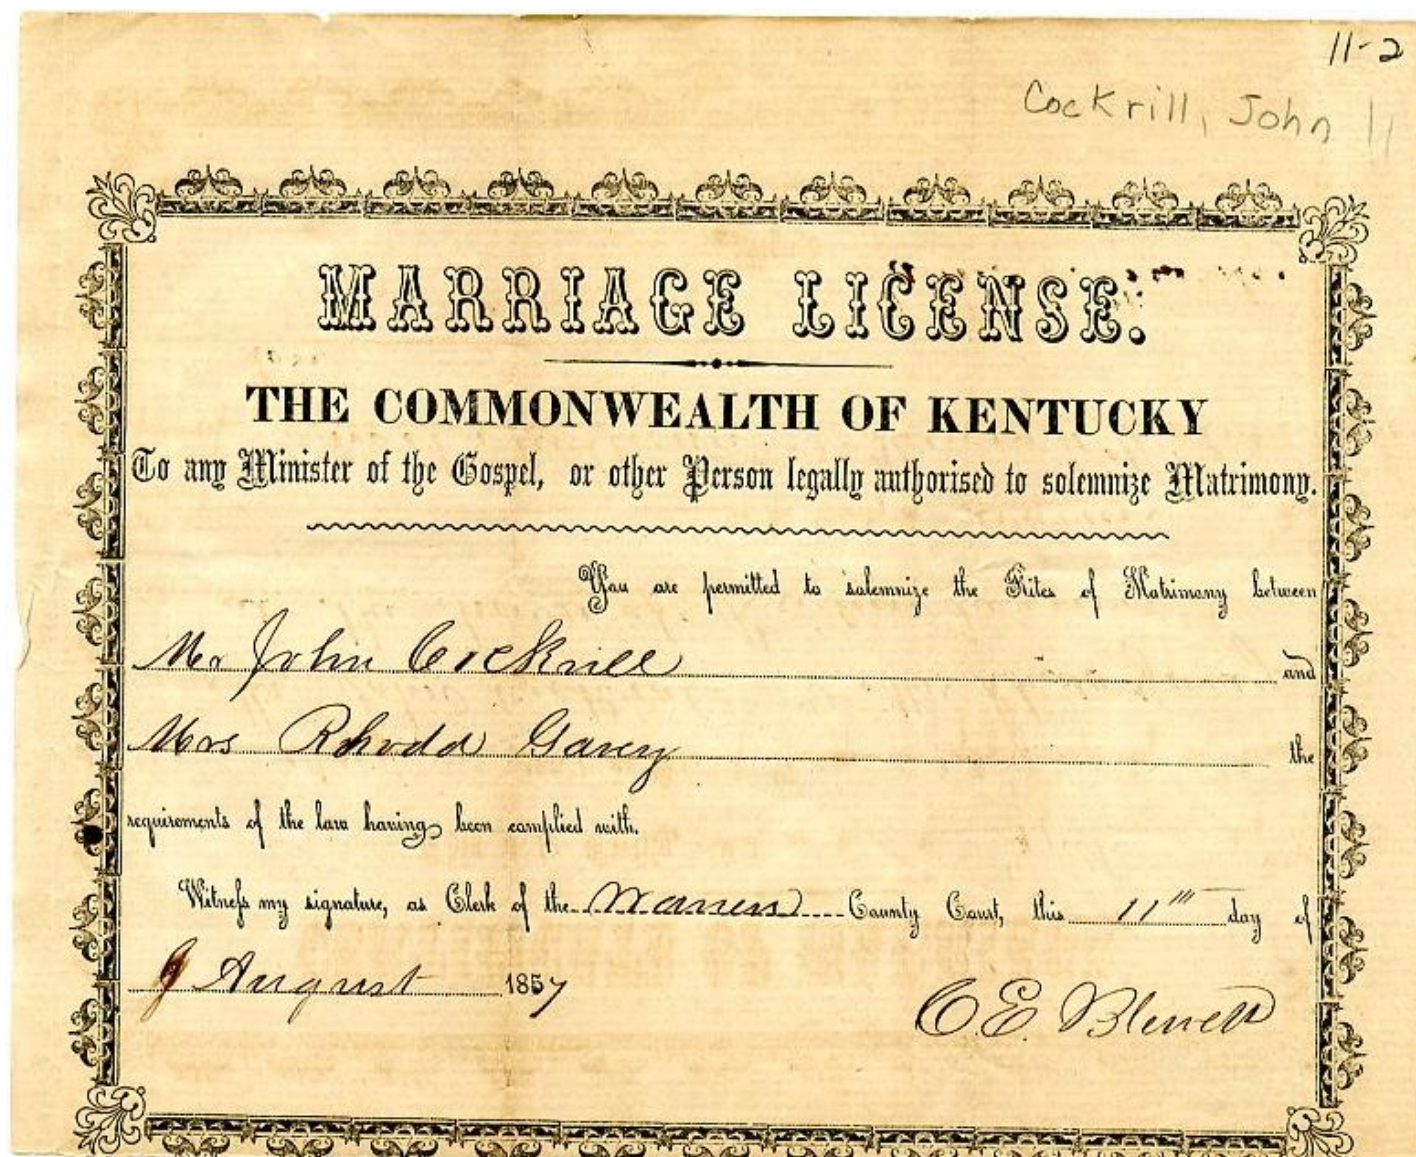 11-2
Cockrill, John 11
MARRIAGE LICENSE.
THE COMMONWEALTH OF KENTUCKY
To any Minister of the Gospel, or other Person legally authorised to solemnize Matrimony.
You are permitted to solemnize the Rites of Matrimony between
Mr John Cockrill and
Mrs Rhoda the
requirements of the law having been complied with.
Witness my signature, as Clerk of the Warren County Court, this 11th day of
August 1857
C. E. Blewett